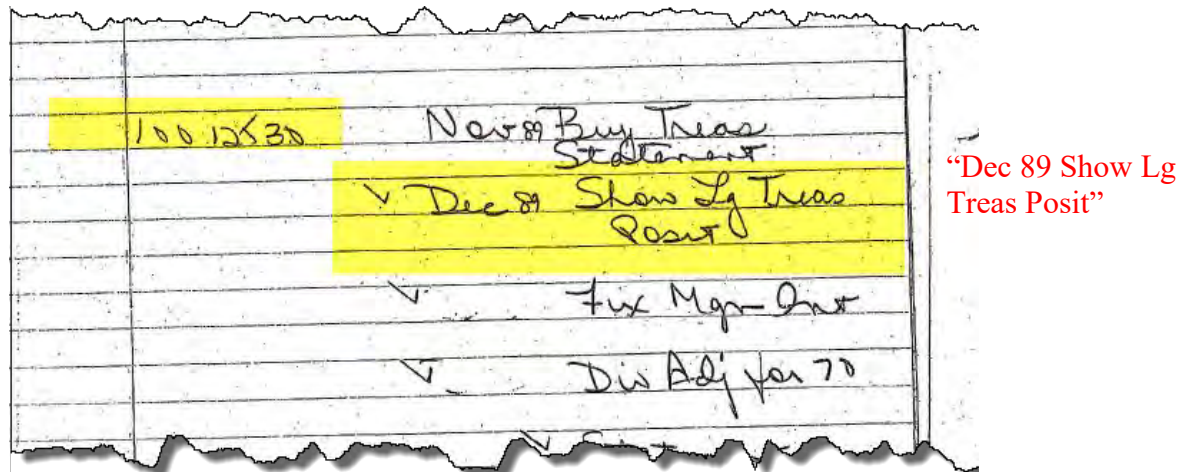 1 00 12530 Nov 89 Buy Treas
Statement
✓ Dec 89 Show Lg Treas
Posit
✓ Fix Mgn Int
✓ Div Adj for 70
✓
“Dec 89 Show Lg
Treas Posit”